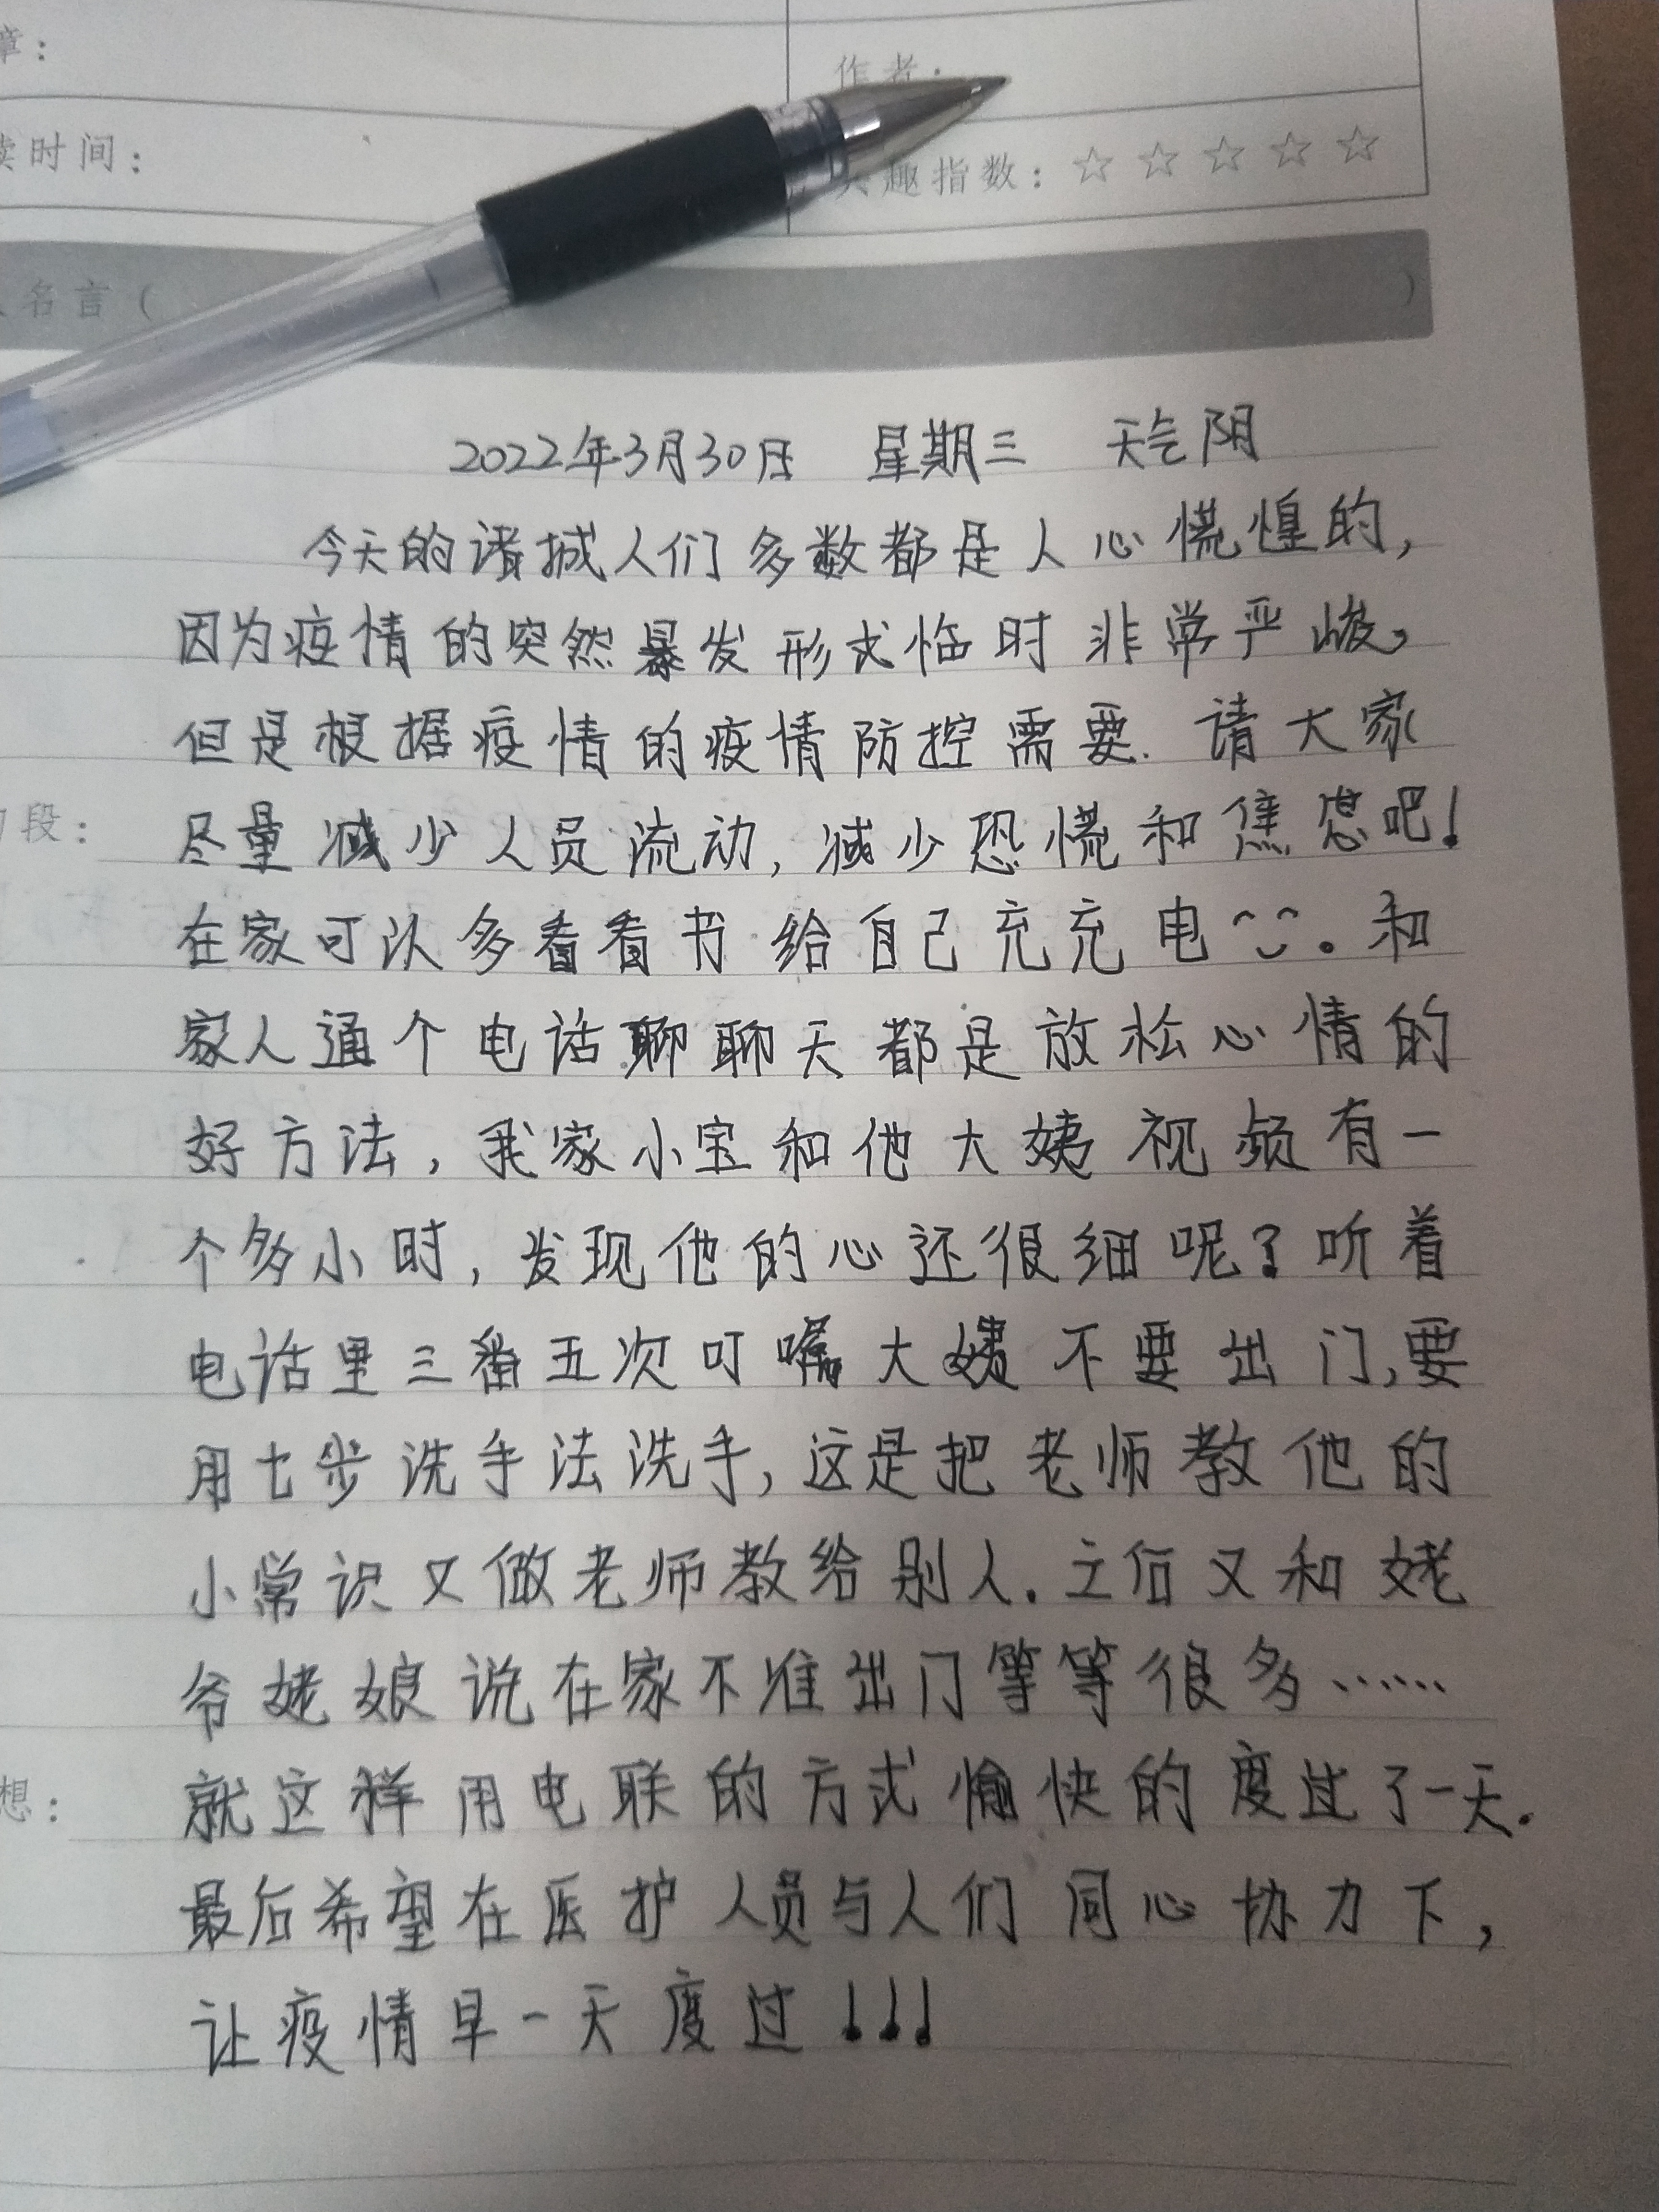 章：
作者：
读时间：
兴趣指数：☆ ☆ ☆ ☆ ☆
名言（ ）
2022年3月30日 星期三 天气阴
今天的诸城人们多数都是人心慌惶的，
因为疫情的突然暴发形式临时非常严峻，
但是根据疫情的疫情防控需要.请大家
段：
尽量减少人员流动，减少恐慌和焦虑吧！
在家可以多看看书给自己充充电。和
家人通个电话聊聊天都是放松心情的
好方法，我家小宝和他大姨视频有一
个多小时，发现他的心还很细呢？听着
电话里三番五次叮嘱大姨不要出门，要
用七步洗手法洗手，这是把老师教他的
小常识又做老师教给别人.立后又和姥
爷姥娘说在家不准出门等等很多……
想：
就这样用电联的方式愉快的度过了一天.
最后希望在医护人员与人们同心协力下，
让疫情早一天度过！！！